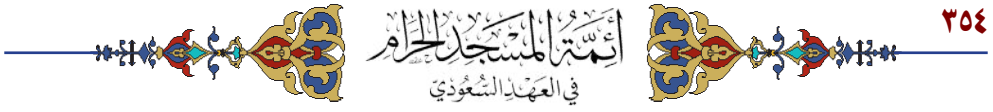 ٣٥٤
أَئِمَّةُ المَسْجِدِ الحَرَامِ
في العَهْدِ السُّعُودِيّ